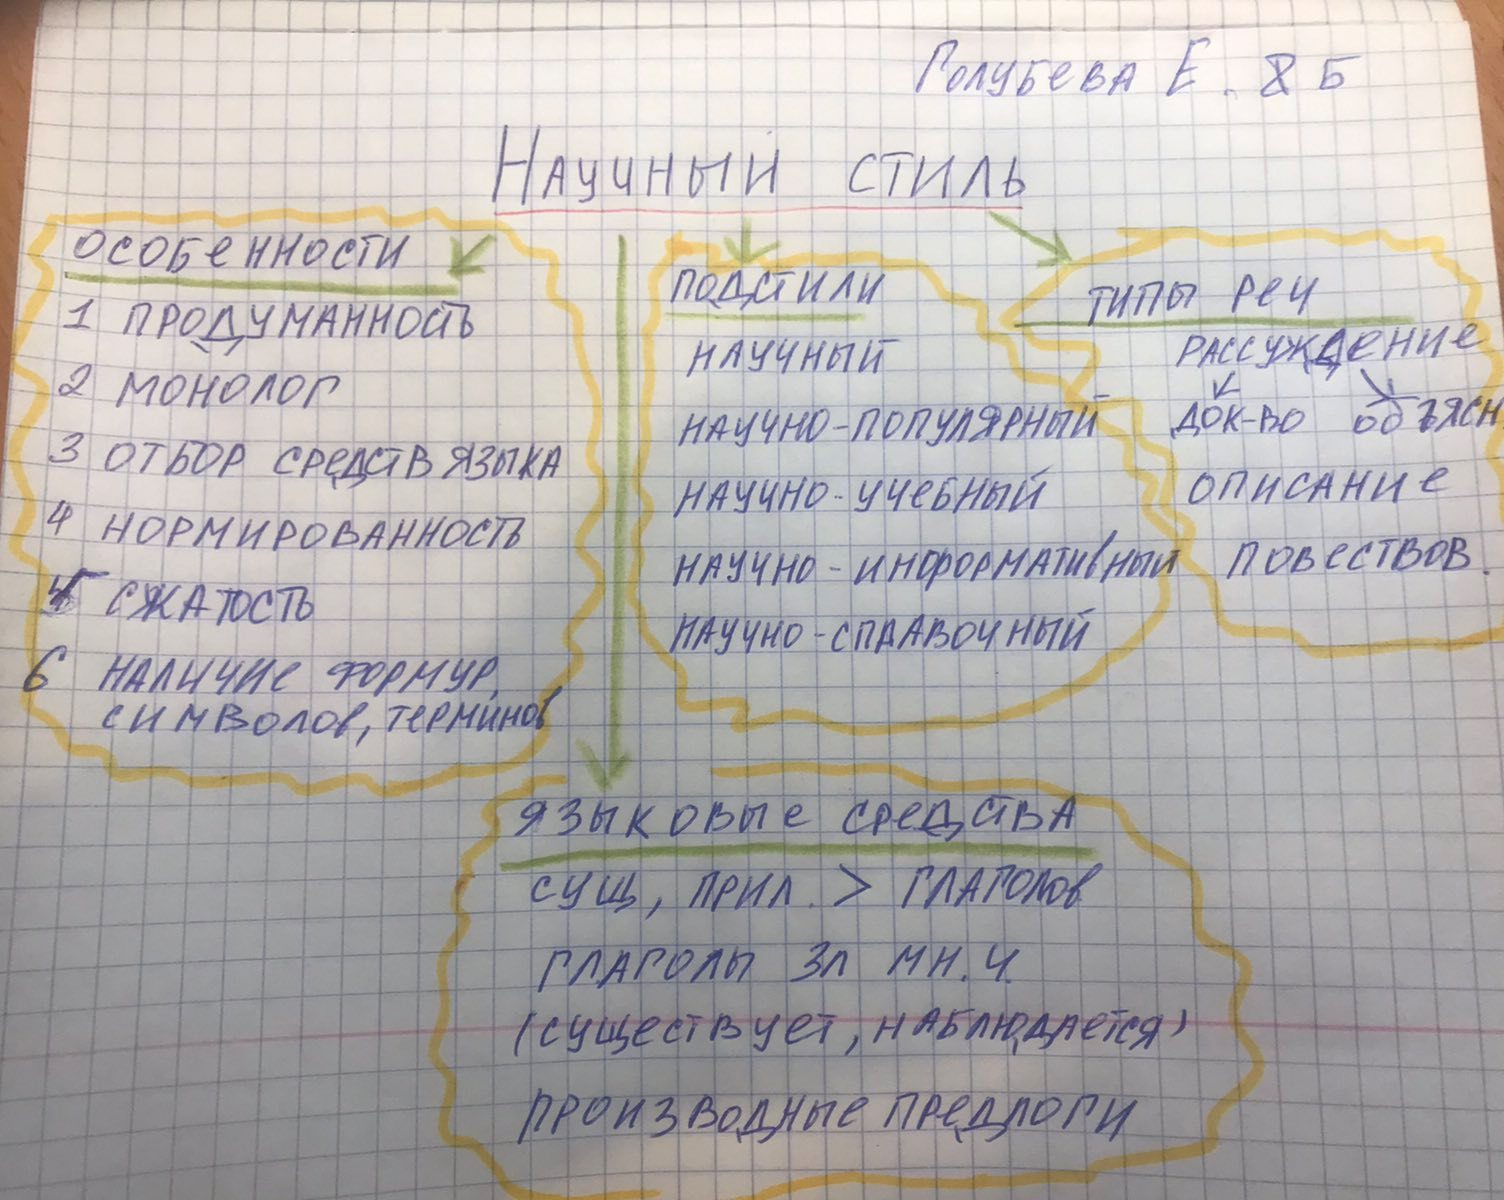 Голубева Е. 8 Б
Научный стиль
особенности
1 продуманность
2 монолог
3 отбор средств языка
4 нормированность
5 сжатость
6 наличие формур,
символов, терминов
подстили
научный
научно-популярный
научно-учебный
научно-информативный
научно-справочный
типы реч
рассуждение
док-во объясн
описание
повествов.
языковые средства
сущ, прил. > глаголов
глаголы 3л мн.ч.
(существует, наблюдается)
производные предлоги